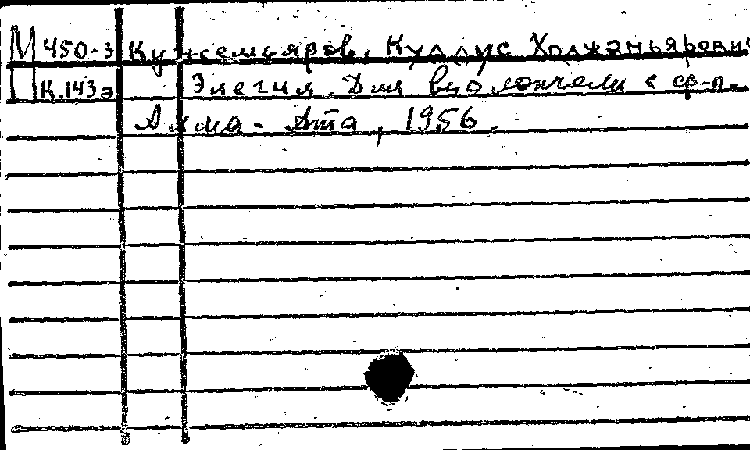 М 450-3 Кужамьяров, Куддус Ходжамьярович
К.143э Элегия. Для виолончели с ф-п.
Алма-Ата, 1956.